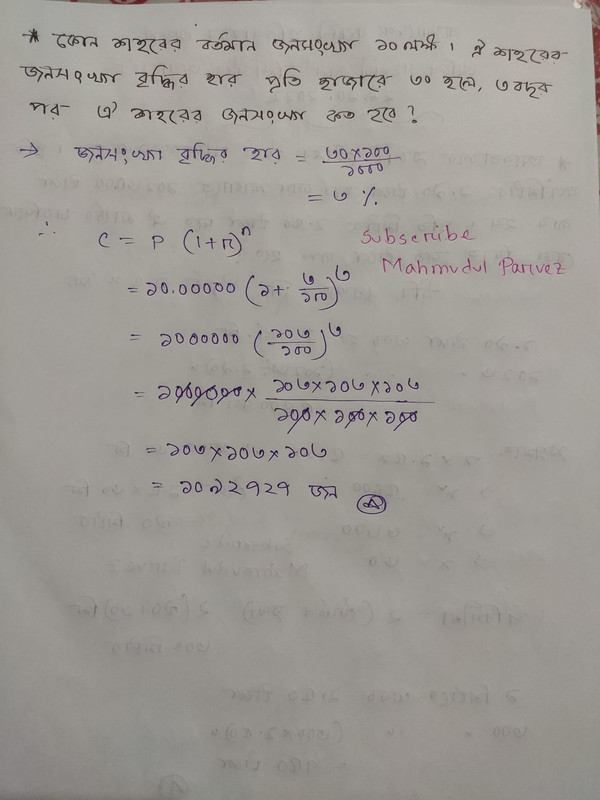 * কোন শহরের বর্তমান জনসংখ্যা ১০ লক্ষ। ঐ শহরের
জনসংখ্যা বৃদ্ধির হার প্রতি হাজারে ৩০ হলে, ৩ বছর
পর ঐ শহরের জনসংখ্যা কত হবে?
→ জনসংখ্যা বৃদ্ধির হার = ৩০×১০০/১০০০
= ৩ %
∴ C = P (1+r)^n
Subscribe
Mahmudul Parvez
= ১০.০০০০০ (১+ ৩/১০০)^৩
= ১০০০০০০ (১০৩/১০০)^৩
= ১০০০০০০ × ১০৩×১০৩×১০৩/১০০×১০০×১০০
= ১০৩×১০৩×১০৩
= ১০৯২৭২৭ জন